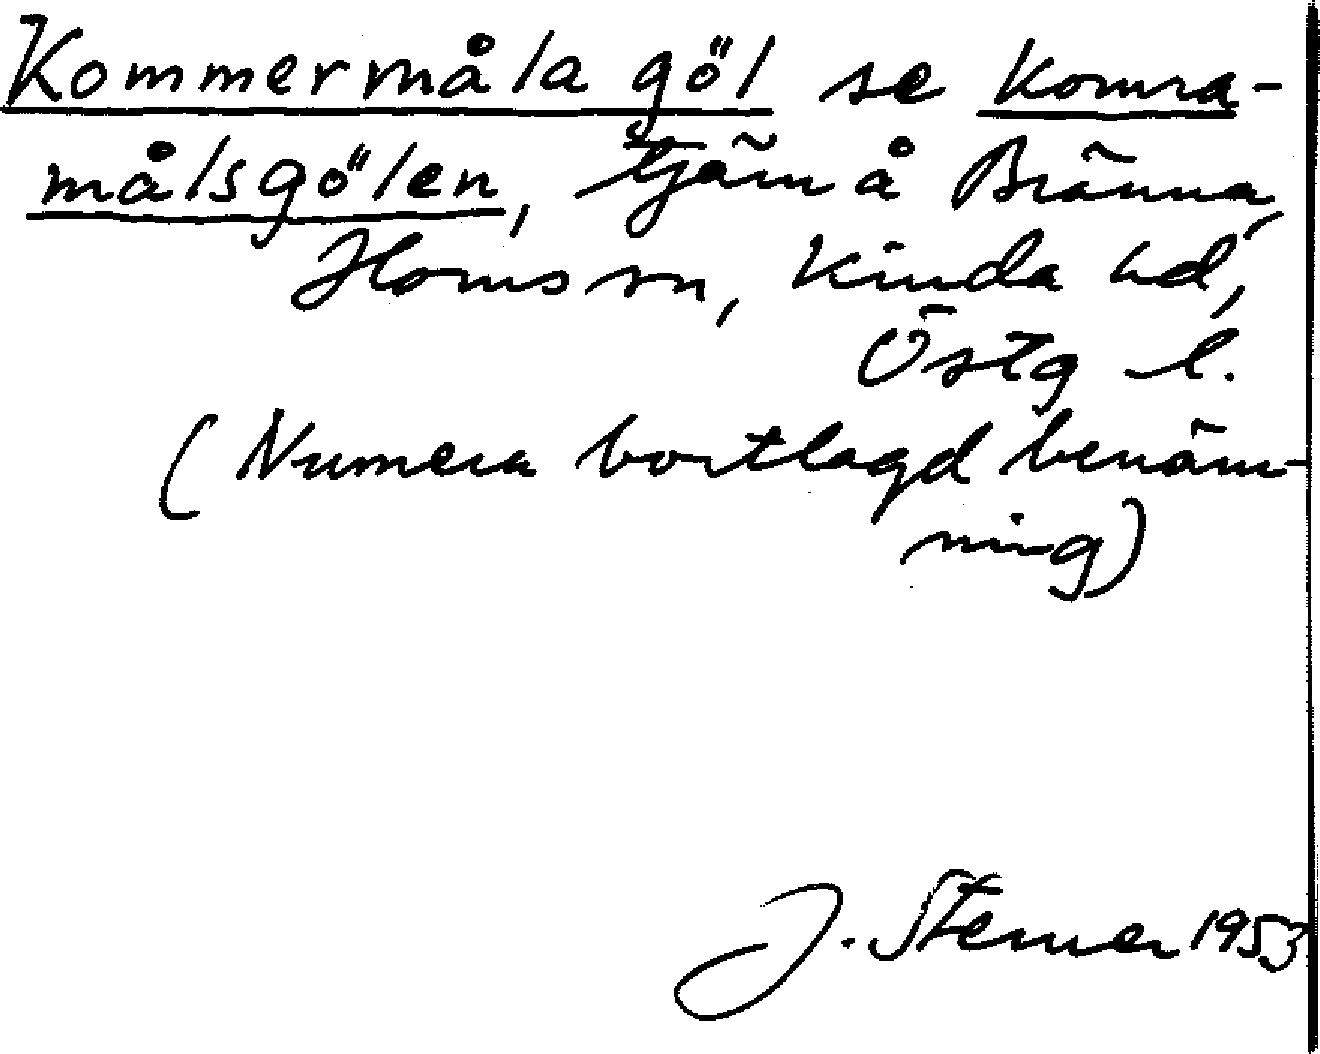 Kommermåla göl se Komra-
målsgölen, tjärn å Bränna,
Horns sn, Kinda hd,
Östg l.
(Numera bortlagd benäm-
ning)
J. Sterner 1953